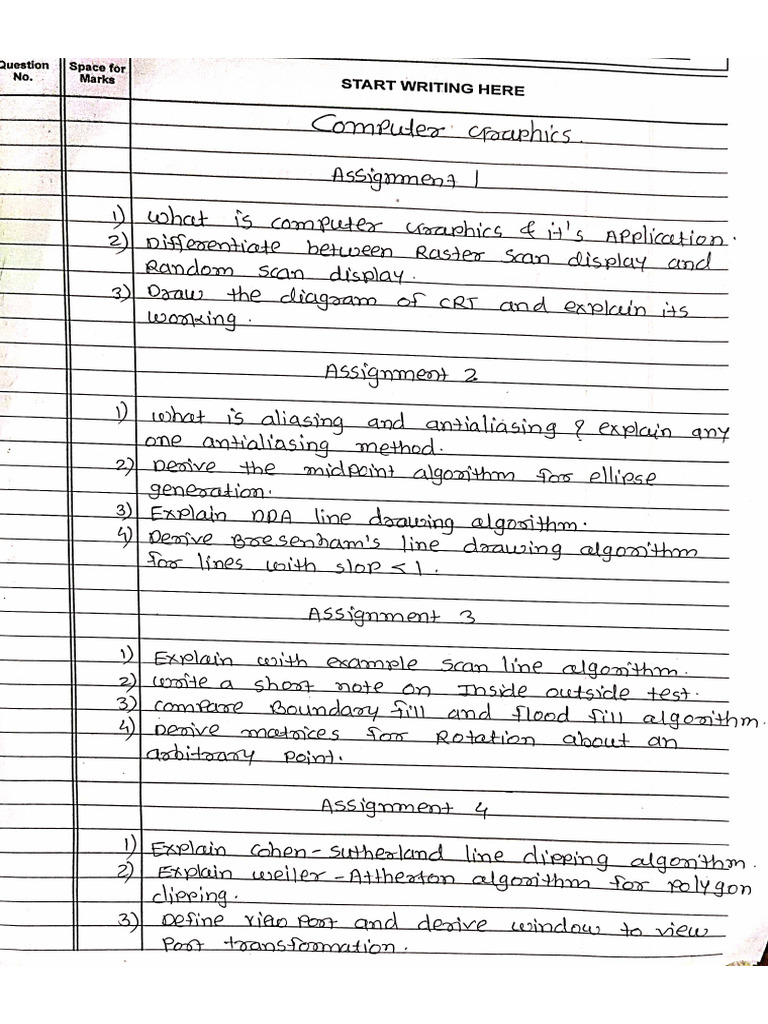 Question No.
Space for Marks
START WRITING HERE
Computer Graphics.
Assignment 1
1) What is computer Graphics & it's Application.
2) Differentiate between Raster Scan display and
Random scan display.
3) Draw the diagram of CRT and explain its
working.
Assignment 2
1) What is aliasing and antialiasing ? explain any
one antialiasing method.
2) Derive the midpoint algorithm for ellipse
generation.
3) Explain DDA line drawing algorithm.
4) Derive Bresenham's line drawing algorithm
for lines with slop < 1.
Assignment 3
1) Explain with example scan line algorithm.
2) Write a short note on Inside outside test.
3) compare Boundary fill and flood fill algorithm.
4) Derive matrices for Rotation about an
arbitrary point.
Assignment 4
1) Explain Cohen-Sutherland line clipping algorithm.
2) Explain weiler-Attherton algorithm for polygon
clipping.
3) Define view port and derive window to view
port transformation.